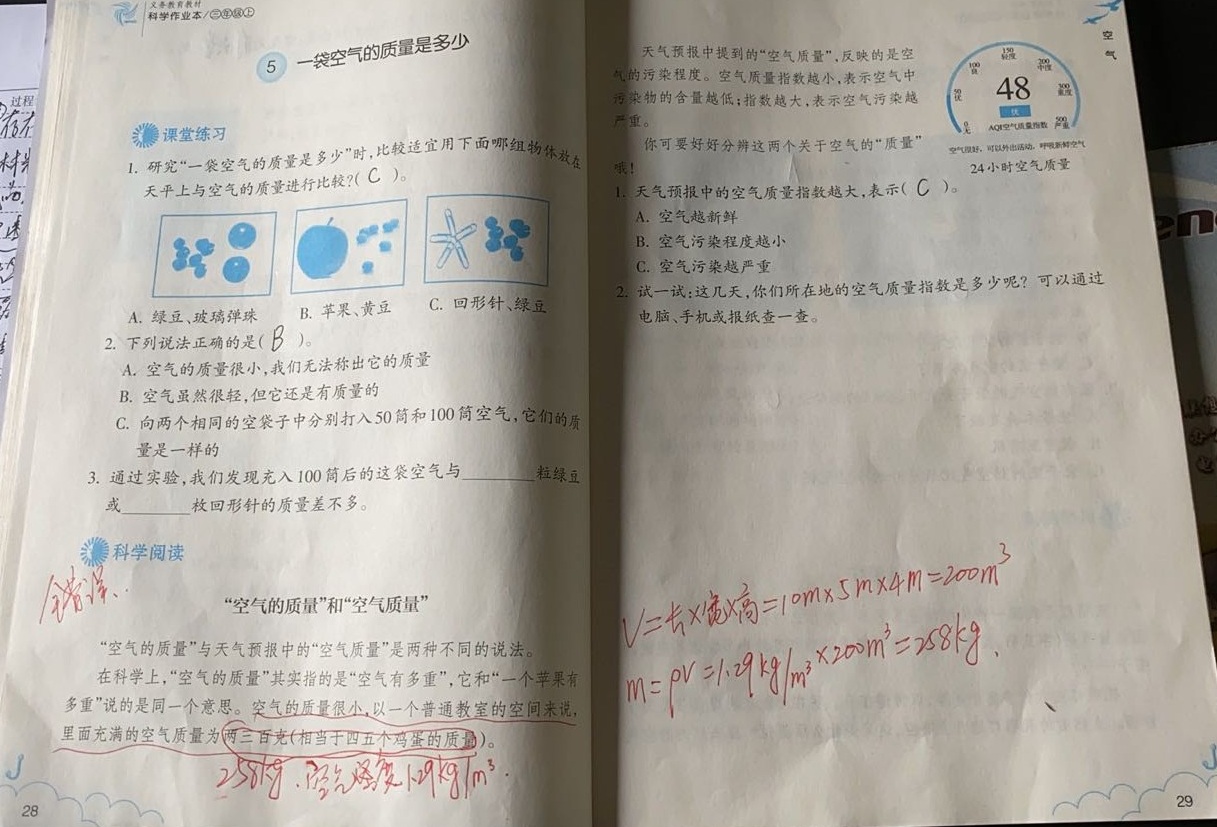 义务教育教材
科学作业本/三年级上
5 一袋空气的质量是多少
课堂练习
1. 研究“一袋空气的质量是多少”时,比较适宜用下面哪组物体放在
天平上与空气的质量进行比较?( C )。
A. 绿豆、玻璃弹珠 B. 苹果、黄豆 C. 回形针、绿豆
2. 下列说法正确的是( B )。
A. 空气的质量很小,我们无法称出它的质量
B. 空气虽然很轻,但它还是有质量的
C. 向两个相同的空袋子中分别打入50筒和100筒空气,它们的质
量是一样的
3. 通过实验,我们发现充入100筒后的这袋空气与________粒绿豆
或________枚回形针的质量差不多。
科学阅读
“空气的质量”和“空气质量”
“空气的质量”与天气预报中的“空气质量”是两种不同的说法。
在科学上,“空气的质量”其实指的是“空气有多重”,它和“一个苹果有
多重”说的是同一个意思。空气的质量很小,以一个普通教室的空间来说,
里面充满的空气质量为两三百克(相当于四五个鸡蛋的质量)。
258kg. 空气密度1.29kg/m³.
28
空气
天气预报中提到的“空气质量”,反映的是空
气的污染程度。空气质量指数越小,表示空气中
污染物的含量越低;指数越大,表示空气污染越
严重。
你可要好好分辨这两个关于空气的“质量”
哦!
0 无
50 优
100 良
150 轻度
200 中度
300 重度
500 严重
48
优
AQI空气质量指数
空气很好,可以外出活动,呼吸新鲜空气
24小时空气质量
1. 天气预报中的空气质量指数越大,表示( C )。
A. 空气越新鲜
B. 空气污染程度越小
C. 空气污染越严重
2. 试一试:这几天,你们所在地的空气质量指数是多少呢?可以通过
电脑、手机或报纸查一查。
V=长×宽×高=10m×5m×4m=200m³
m=ρV=1.29kg/m³×200m³=258kg.
29